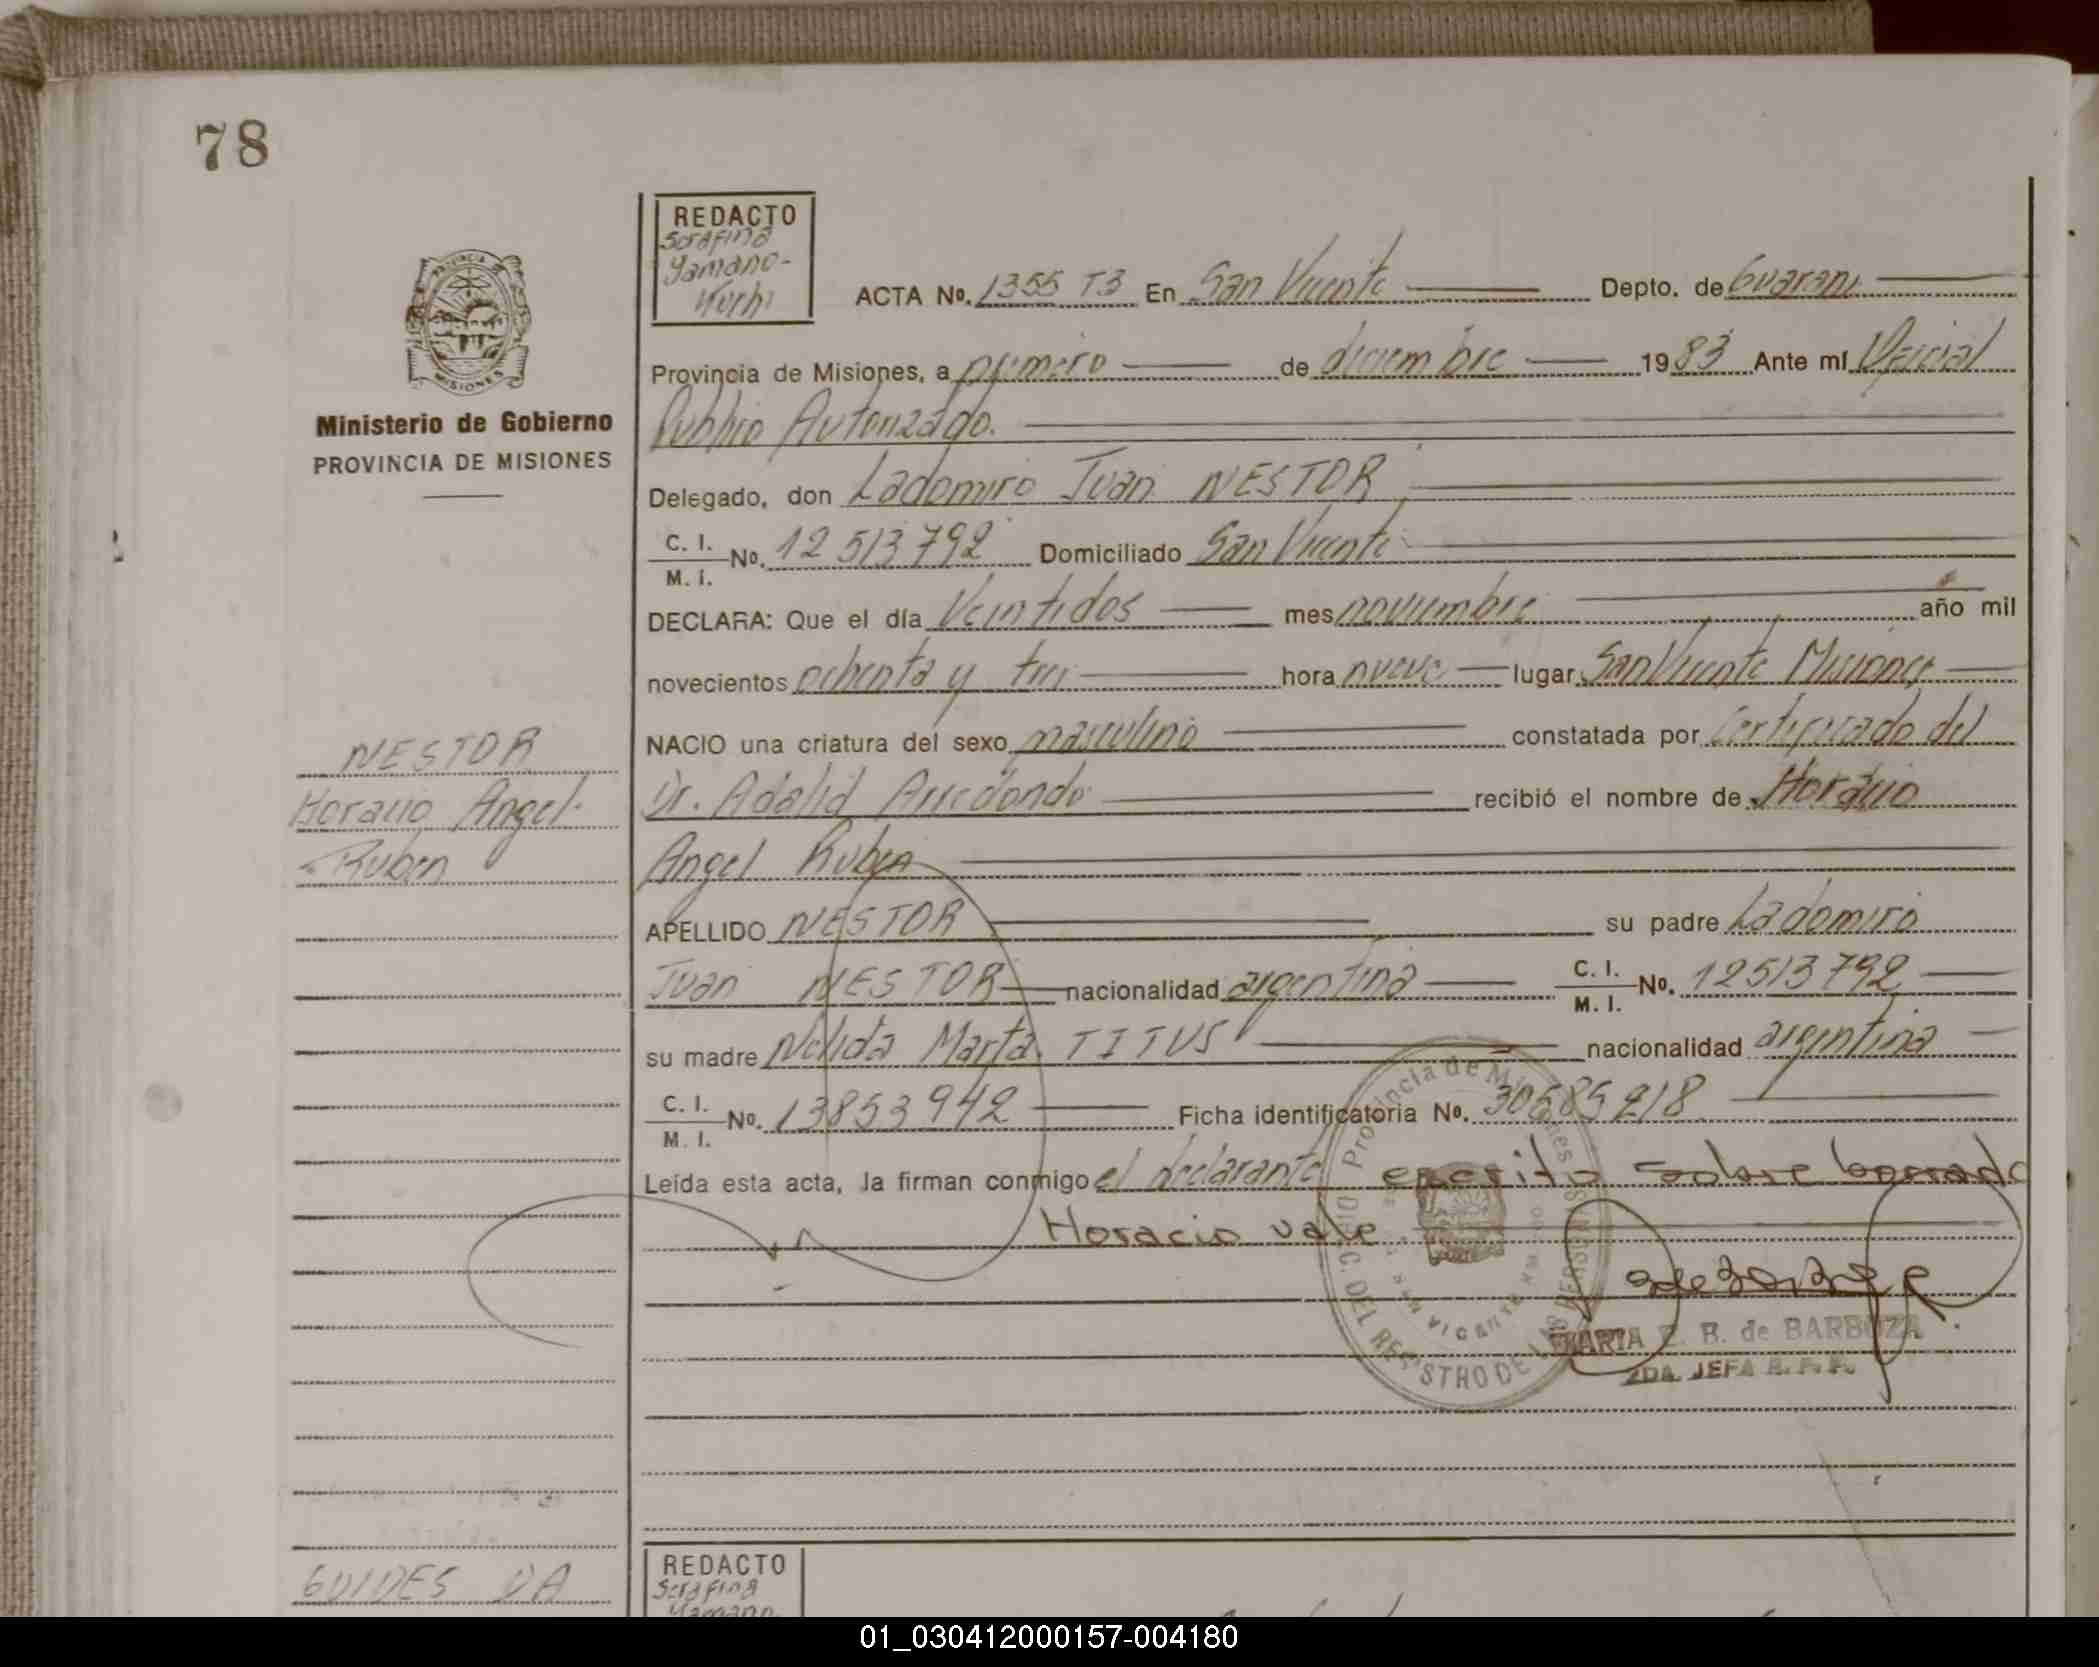 78
REDACTO
Serafina
Yamano-
ACTA No. 1355 T3 En San Vicente Depto. de Guarani
PROVINCIA DE
MISIONES
Provincia de Misiones, a primero de diciembre 1983 Ante mí Oficial
Ministerio de Gobierno
Publico Autorizado.
PROVINCIA DE MISIONES
Delegado, don Ladomiro Juan NESTOR
C. I.
M. I. No. 12513792 Domiciliado San Vicente
DECLARA: Que el día Veintidos mes noviembre año mil
novecientos ochenta y tres hora nueve lugar San Vicente Misiones
NACIO una criatura del sexo masculino constatada por Certificado del
NESTOR
Dr. Adalid Arredondo recibió el nombre de Horacio
Horacio Angel
Angel Ruben
Ruben
APELLIDO NESTOR su padre Ladomiro
Juan NESTOR nacionalidad argentina C. I.
M. I. No. 12513792
su madre Nelida Marta TITUS nacionalidad argentina
C. I.
M. I. No. 13853942 Ficha identificatoria No. 30585218
Leída esta acta, la firman conmigo el declarante escrito sobre borrado
Horacio vale
Provincia de Misiones
DEL REGISTRO DE LAS PERSONAS
SAN VICENTE
MARTA E. B. de BARBOZA
2DA. JEFA
REDACTO
Serafina
Yamano
01_030412000157-004180